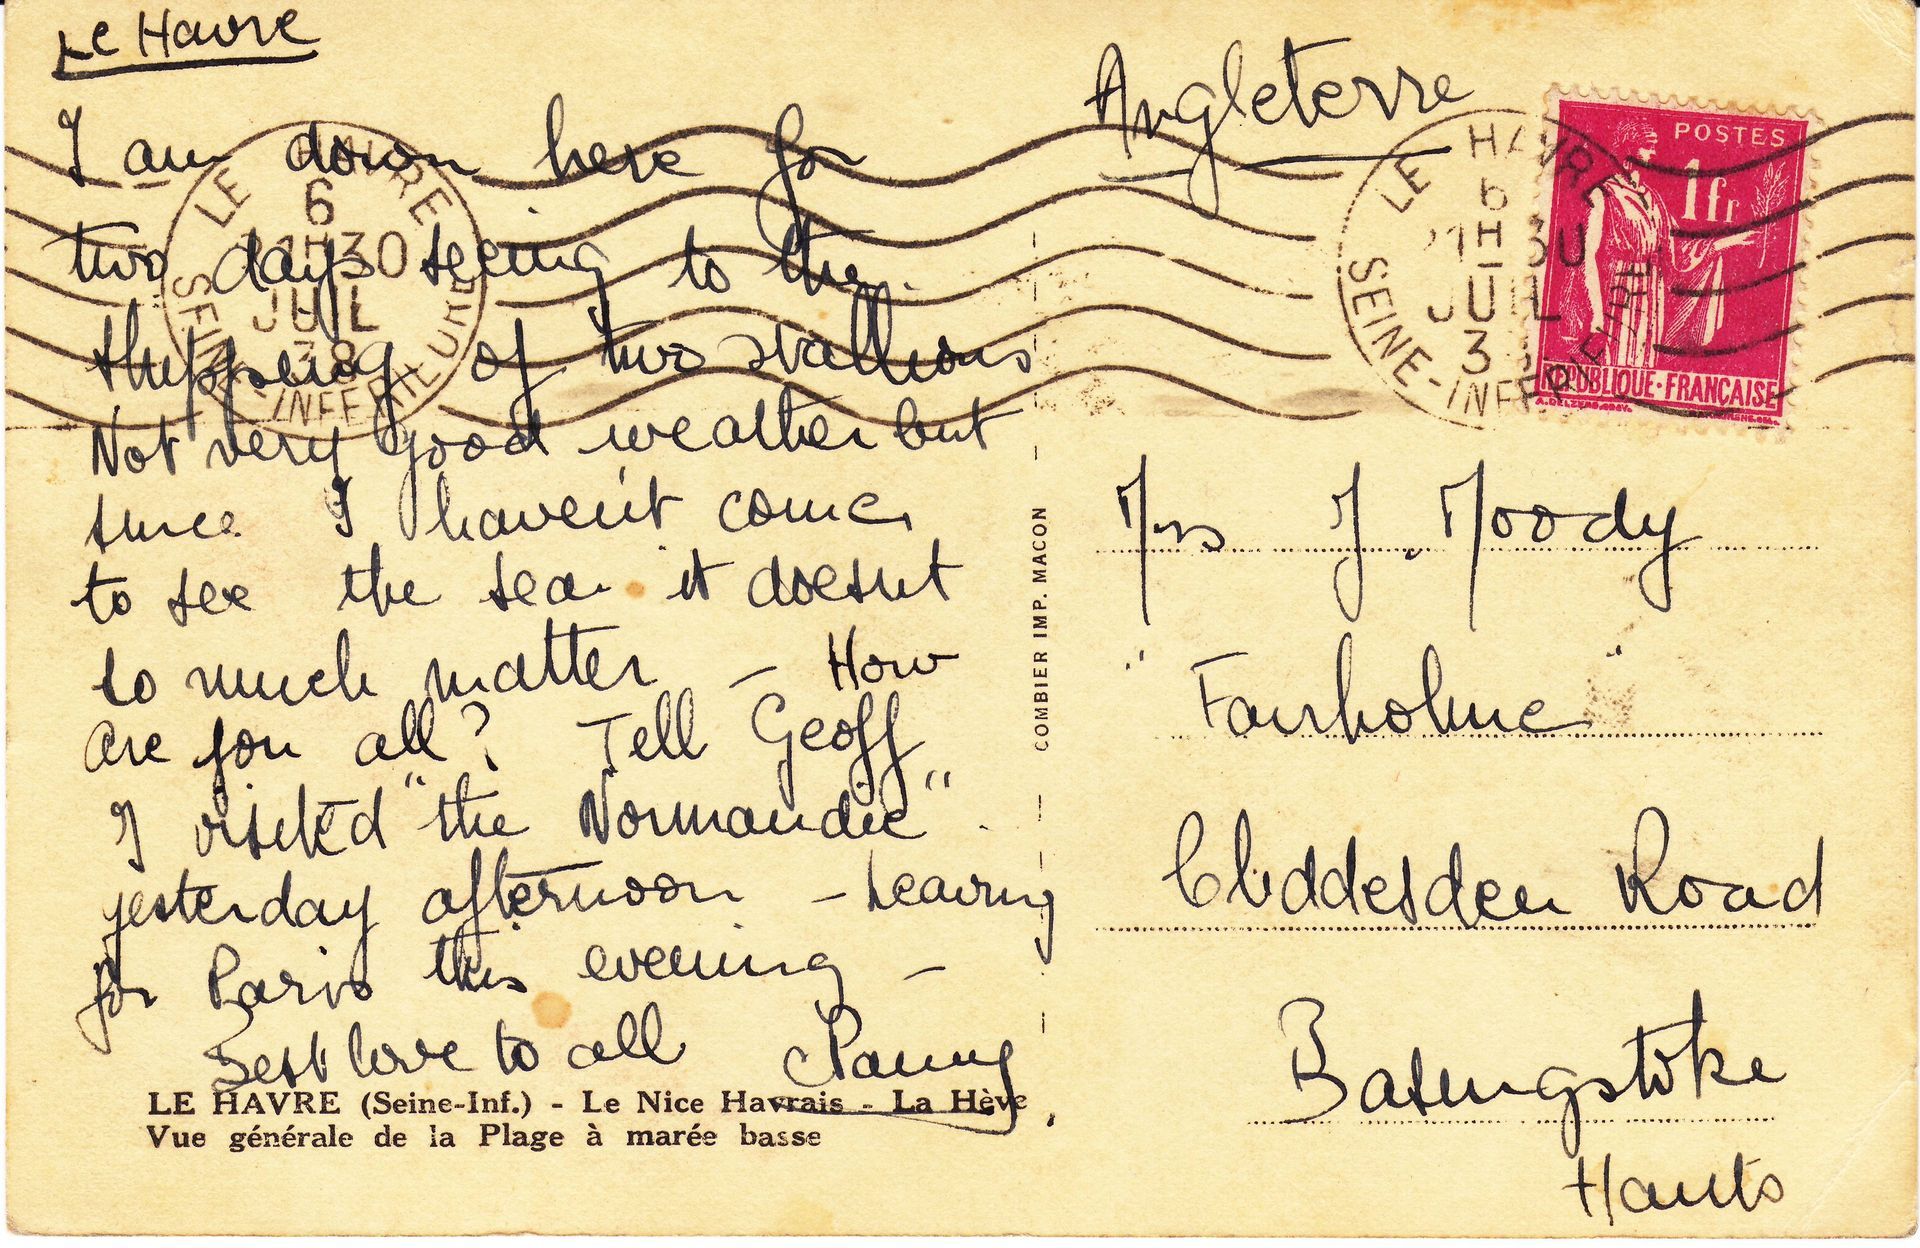 Le Havre
I am down here for
two days seeing to the
shipping of two stallions
Not very good weather but
since I haven't come
to see the sea it doesnt
so much matter – How
are you all? Tell Geoff
I visited "the Normandie".
yesterday afternoon – Leaving
for Paris this evening –
Best love to all
LE HAVRE (Seine-Inf.) - Le Nice Havrais - La Hève
Vue générale de la Plage à marée basse
LE HAVRE
6
H30
JUIL
38
SEINE-INFERIEURE
COMBIER IMP. MACON
Angleterre
LE HAVRE
6
21H30
JUIL
3
SEINE-INFERIEURE
POSTES
1fr
REPUBLIQUE·FRANÇAISE
Mrs J. Moody
"Fairholme"
Cliddesden Road
Basingstoke
Hants